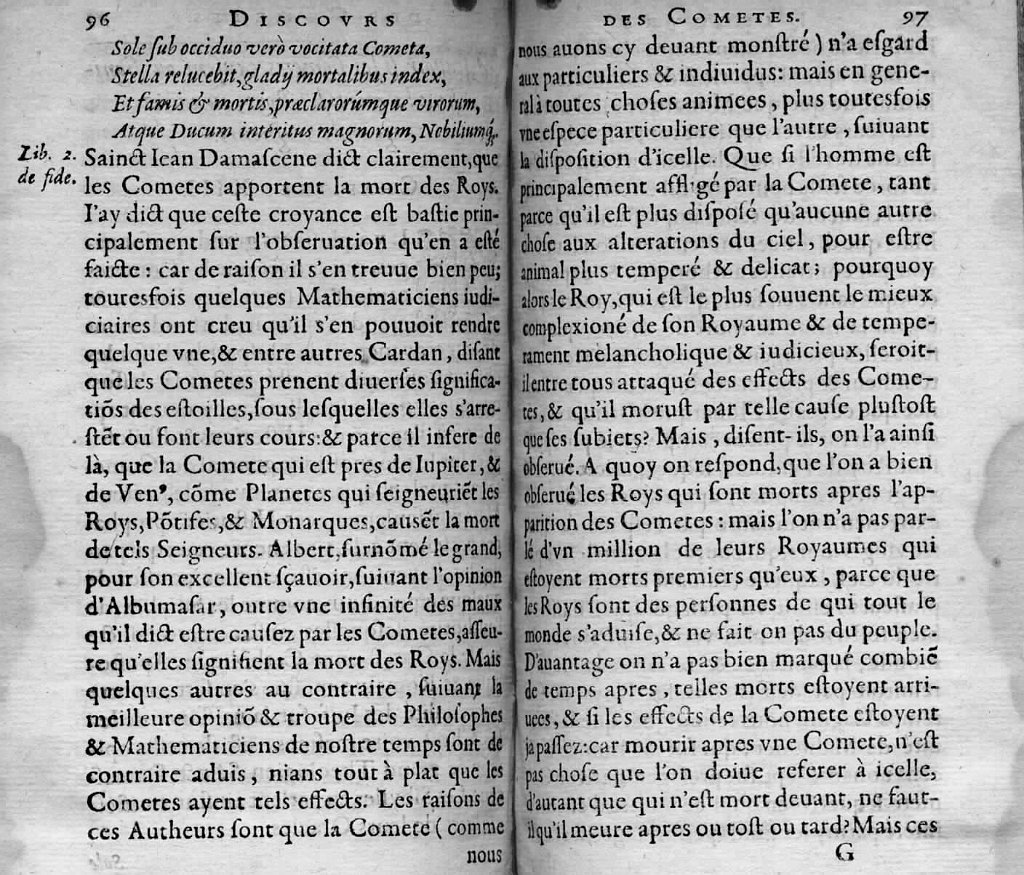 96 DISCOVRS
Sole ſub occiduo verò vocitata Cometa,
Stella relucebit, gladij mortalibus index,
Et famis & mortis, præclarorúmque virorum,
Atque Ducum interitus magnorum, Nobiliumq́;.
Lib. 2.
de fide.
Sainct Iean Damaſcene dict clairement, que
les Cometes apportent la mort des Roys.
I'ay dict que ceſte croyance eſt baſtie prin-
cipalement ſur l'obſeruation qu'en a eſté
faicte : car de raiſon il s'en treuue bien peu;
toutesfois quelques Mathematiciens iudi-
ciaires ont creu qu'il s'en pouuoit rendre
quelque vne, & entre autres Cardan, diſant
que les Cometes prenent diuerſes ſignifica-
tiõs des eſtoilles, ſous leſquelles elles s'arre-
ſtẽt ou font leurs cours: & parce il infere de
là, que la Comete qui eſt pres de Iupiter, &
de Venꝰ, cõme Planetes qui ſeigneuriẽt les
Roys, Põtifes, & Monarques, cauſẽt la mort
de tels Seigneurs. Albert, ſurnõmé le grand,
pour ſon excellent ſçauoir, ſuiuant l'opinion
d'Albumaſar, outre vne infinité des maux
qu'il dict eſtre cauſez par les Cometes, aſſeu-
re qu'elles ſignifient la mort des Roys. Mais
quelques autres au contraire, ſuiuant la
meilleure opiniõ & troupe des Philoſophes
& Mathematiciens de noſtre temps ſont de
contraire aduis, nians tout à plat que les
Cometes ayent tels effects. Les raiſons de
ces Autheurs ſont que la Comete ( comme
nous
DES COMETES. 97
nous auons cy deuant monſtré ) n'a eſgard
aux particuliers & indiuidus: mais en gene-
ral à toutes choſes animees, plus toutesfois
vne eſpece particuliere que l'autre, ſuiuant
la diſpoſition d'icelle. Que ſi l'homme eſt
principalement affligé par la Comete, tant
parce qu'il eſt plus diſpoſé qu'aucune autre
choſe aux alterations du ciel, pour eſtre
animal plus temperé & delicat; pourquoy
alors le Roy, qui eſt le plus ſouuent le mieux
complexioné de ſon Royaume & de tempe-
rament melancholique & iudicieux, ſeroit-
il entre tous attaqué des effects des Come-
tes, & qu'il moruſt par telle cauſe pluſtoſt
que ſes ſubiets? Mais, diſent-ils, on l'a ainſi
obſerué. A quoy on reſpond, que l'on a bien
obſerué les Roys qui ſont morts apres l'ap-
parition des Cometes : mais l'on n'a pas par-
lé d'vn million de leurs Royaumes qui
eſtoyent morts premiers qu'eux, parce que
les Roys ſont des perſonnes de qui tout le
monde s'aduiſe, & ne fait on pas du peuple.
D'auantage on n'a pas bien marqué combiẽ
de temps apres, telles morts eſtoyent arri-
uees, & ſi les effects de la Comete eſtoyent
ja paſſez: car mourir apres vne Comete, n'eſt
pas choſe que l'on doiue referer à icelle,
d'autant que qui n'eſt mort deuant, ne faut-
il qu'il meure apres ou toſt ou tard? Mais ces
G